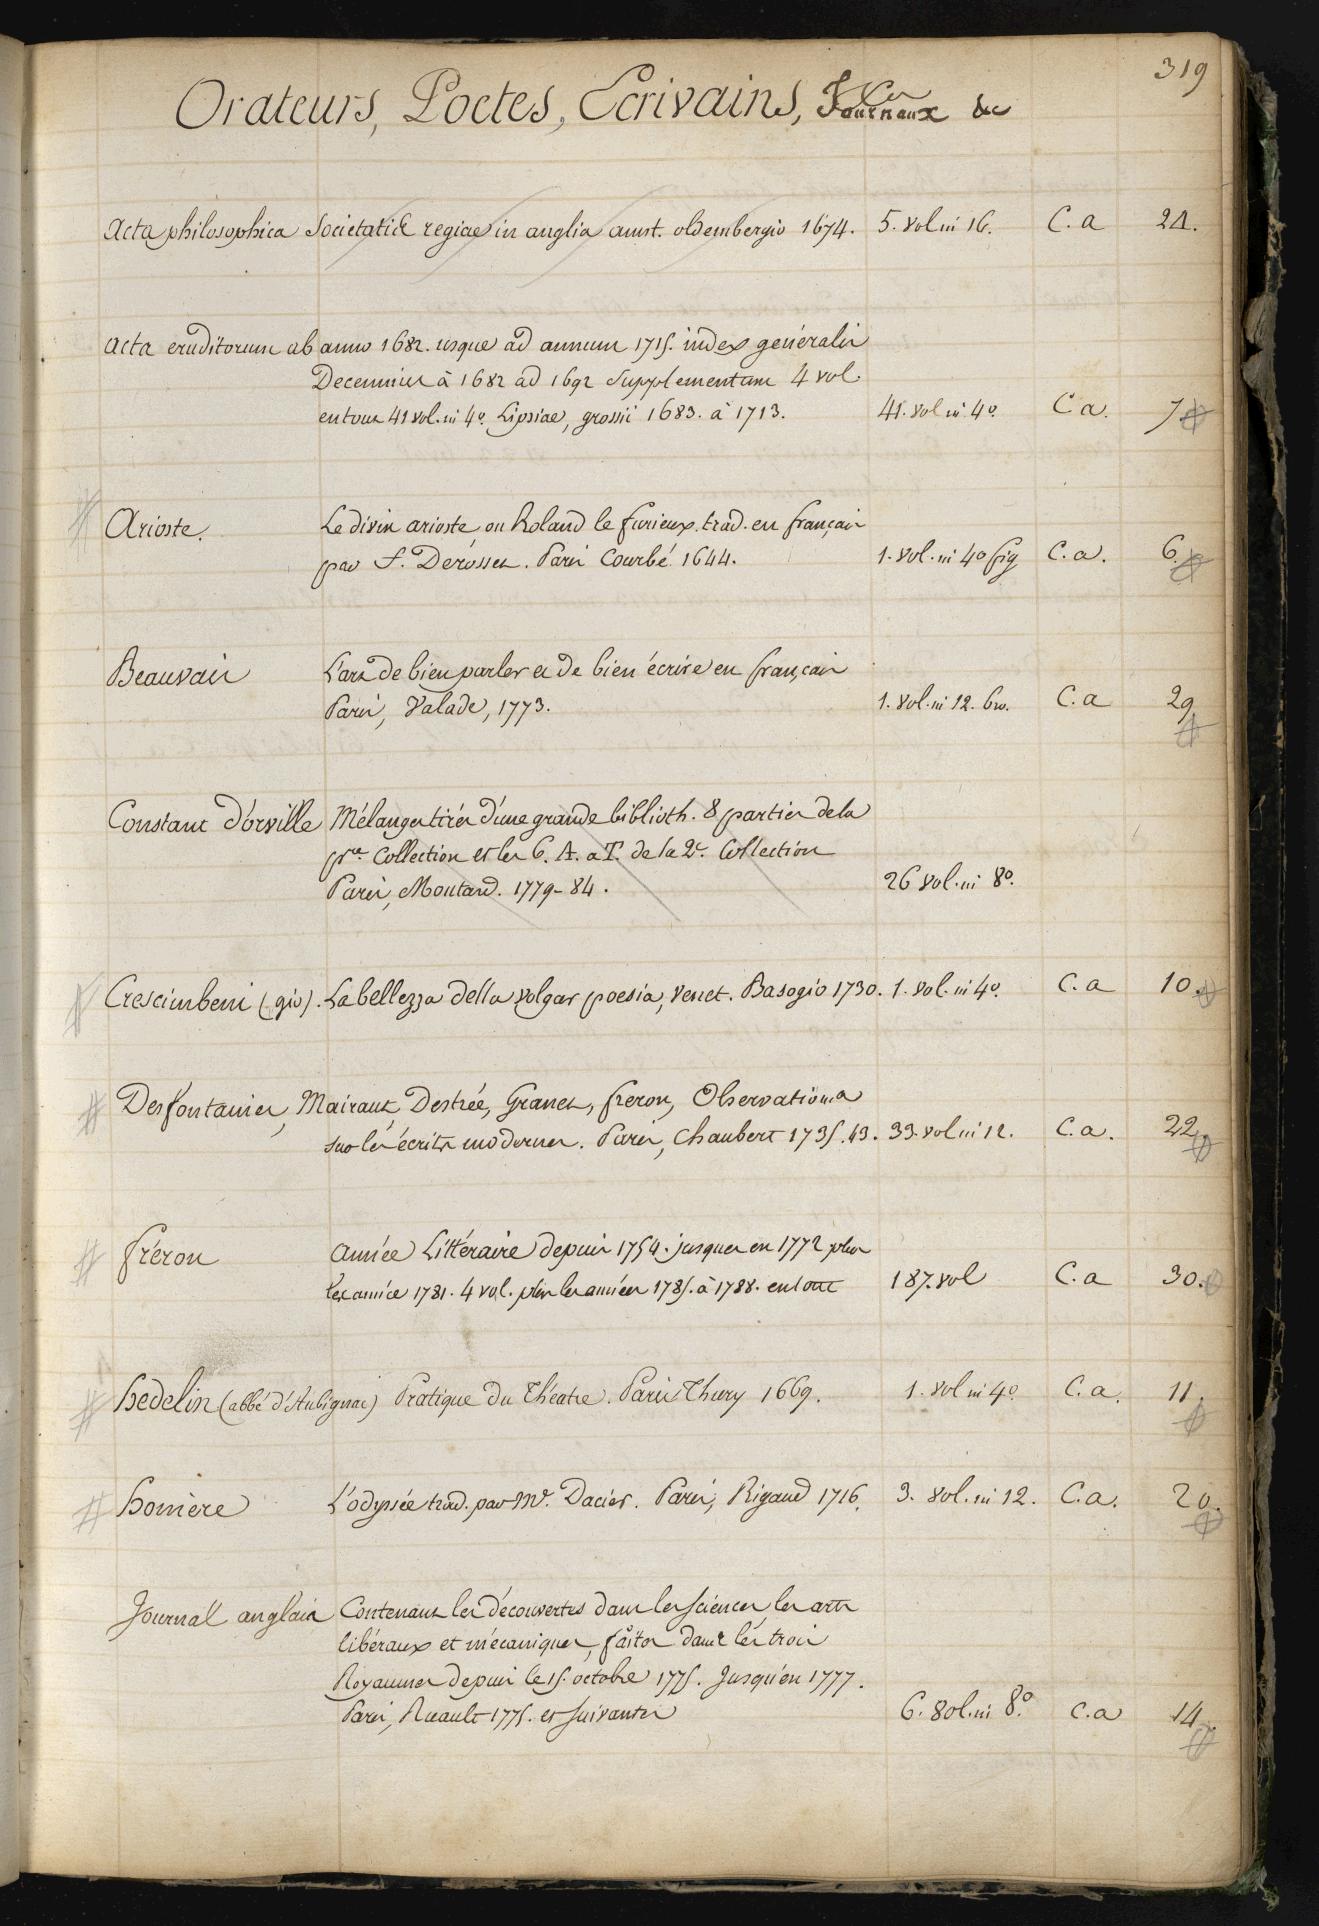 319
Orateurs, Poetes, Ecrivains, Journaux &c
Acta philosophica Societatis regiae in anglia amst. oldembergio 1674. 5. vol in 16. C. a 24.
acta eruditorum ab anno 1682. usque ad annum 1715. index generalis
Decennius à 1682 ad 1692 Supplementum 4 vol.
en tout 41 vol. in 4º. Lipsiae, grossii 1683. à 1713. 41. vol in 4º C a. 7
Arioste. Le divin arioste ou Roland le furieux. trad. en français
par F. De rosset. Paris Courbé. 1644. 1. vol. in 4º fig C. a. 6.
Beauvais L'art de bien parler et de bien écrire en français
Paris, Valade, 1773. 1. vol. in 12. br. C. a 29
Constant d'orville Mélanges tirés d'une grande biblioth. 8 parties de la
pre. Collection et les 6. A. a T. de la 2e. Collection
Paris, Moutard. 1779-84. 26 vol. in 8º.
Crescimbeni (gio). La bellezza della volgar poesia, venet. Basegio 1730. 1. vol. in 4º. C. a 10.
Desfontaines, Mairaut, Destrée, Granet, freron, Observations
sur les écrits modernes. Paris, Chaubert 1735. 43. 33. vol in 12. C. a. 22.
fréron année Littéraire depuis 1754. jusques en 1772 plus
les année 1781. 4 vol. plus les années 1785. à 1788. en tout 187. vol C. a 30.
hedelin (abbé d'Aubignac) Pratique du théatre. Paris Thiery 1669. 1. vol in 4º C. a. 11.
homère L'odyssée trad. par Me. Dacier. Paris, Rigaud 1716. 3. vol. in 12. C. a. 20.
Journal anglais Contenant les découvertes dans les sciences les arts
libéraux et mécaniques, faits dans les trois
Royaumes depuis le 15. octobre 1775. Jusqu'en 1777.
Paris, Ruault 1775. et suivantes 6. vol. in 8º. C. a 14.